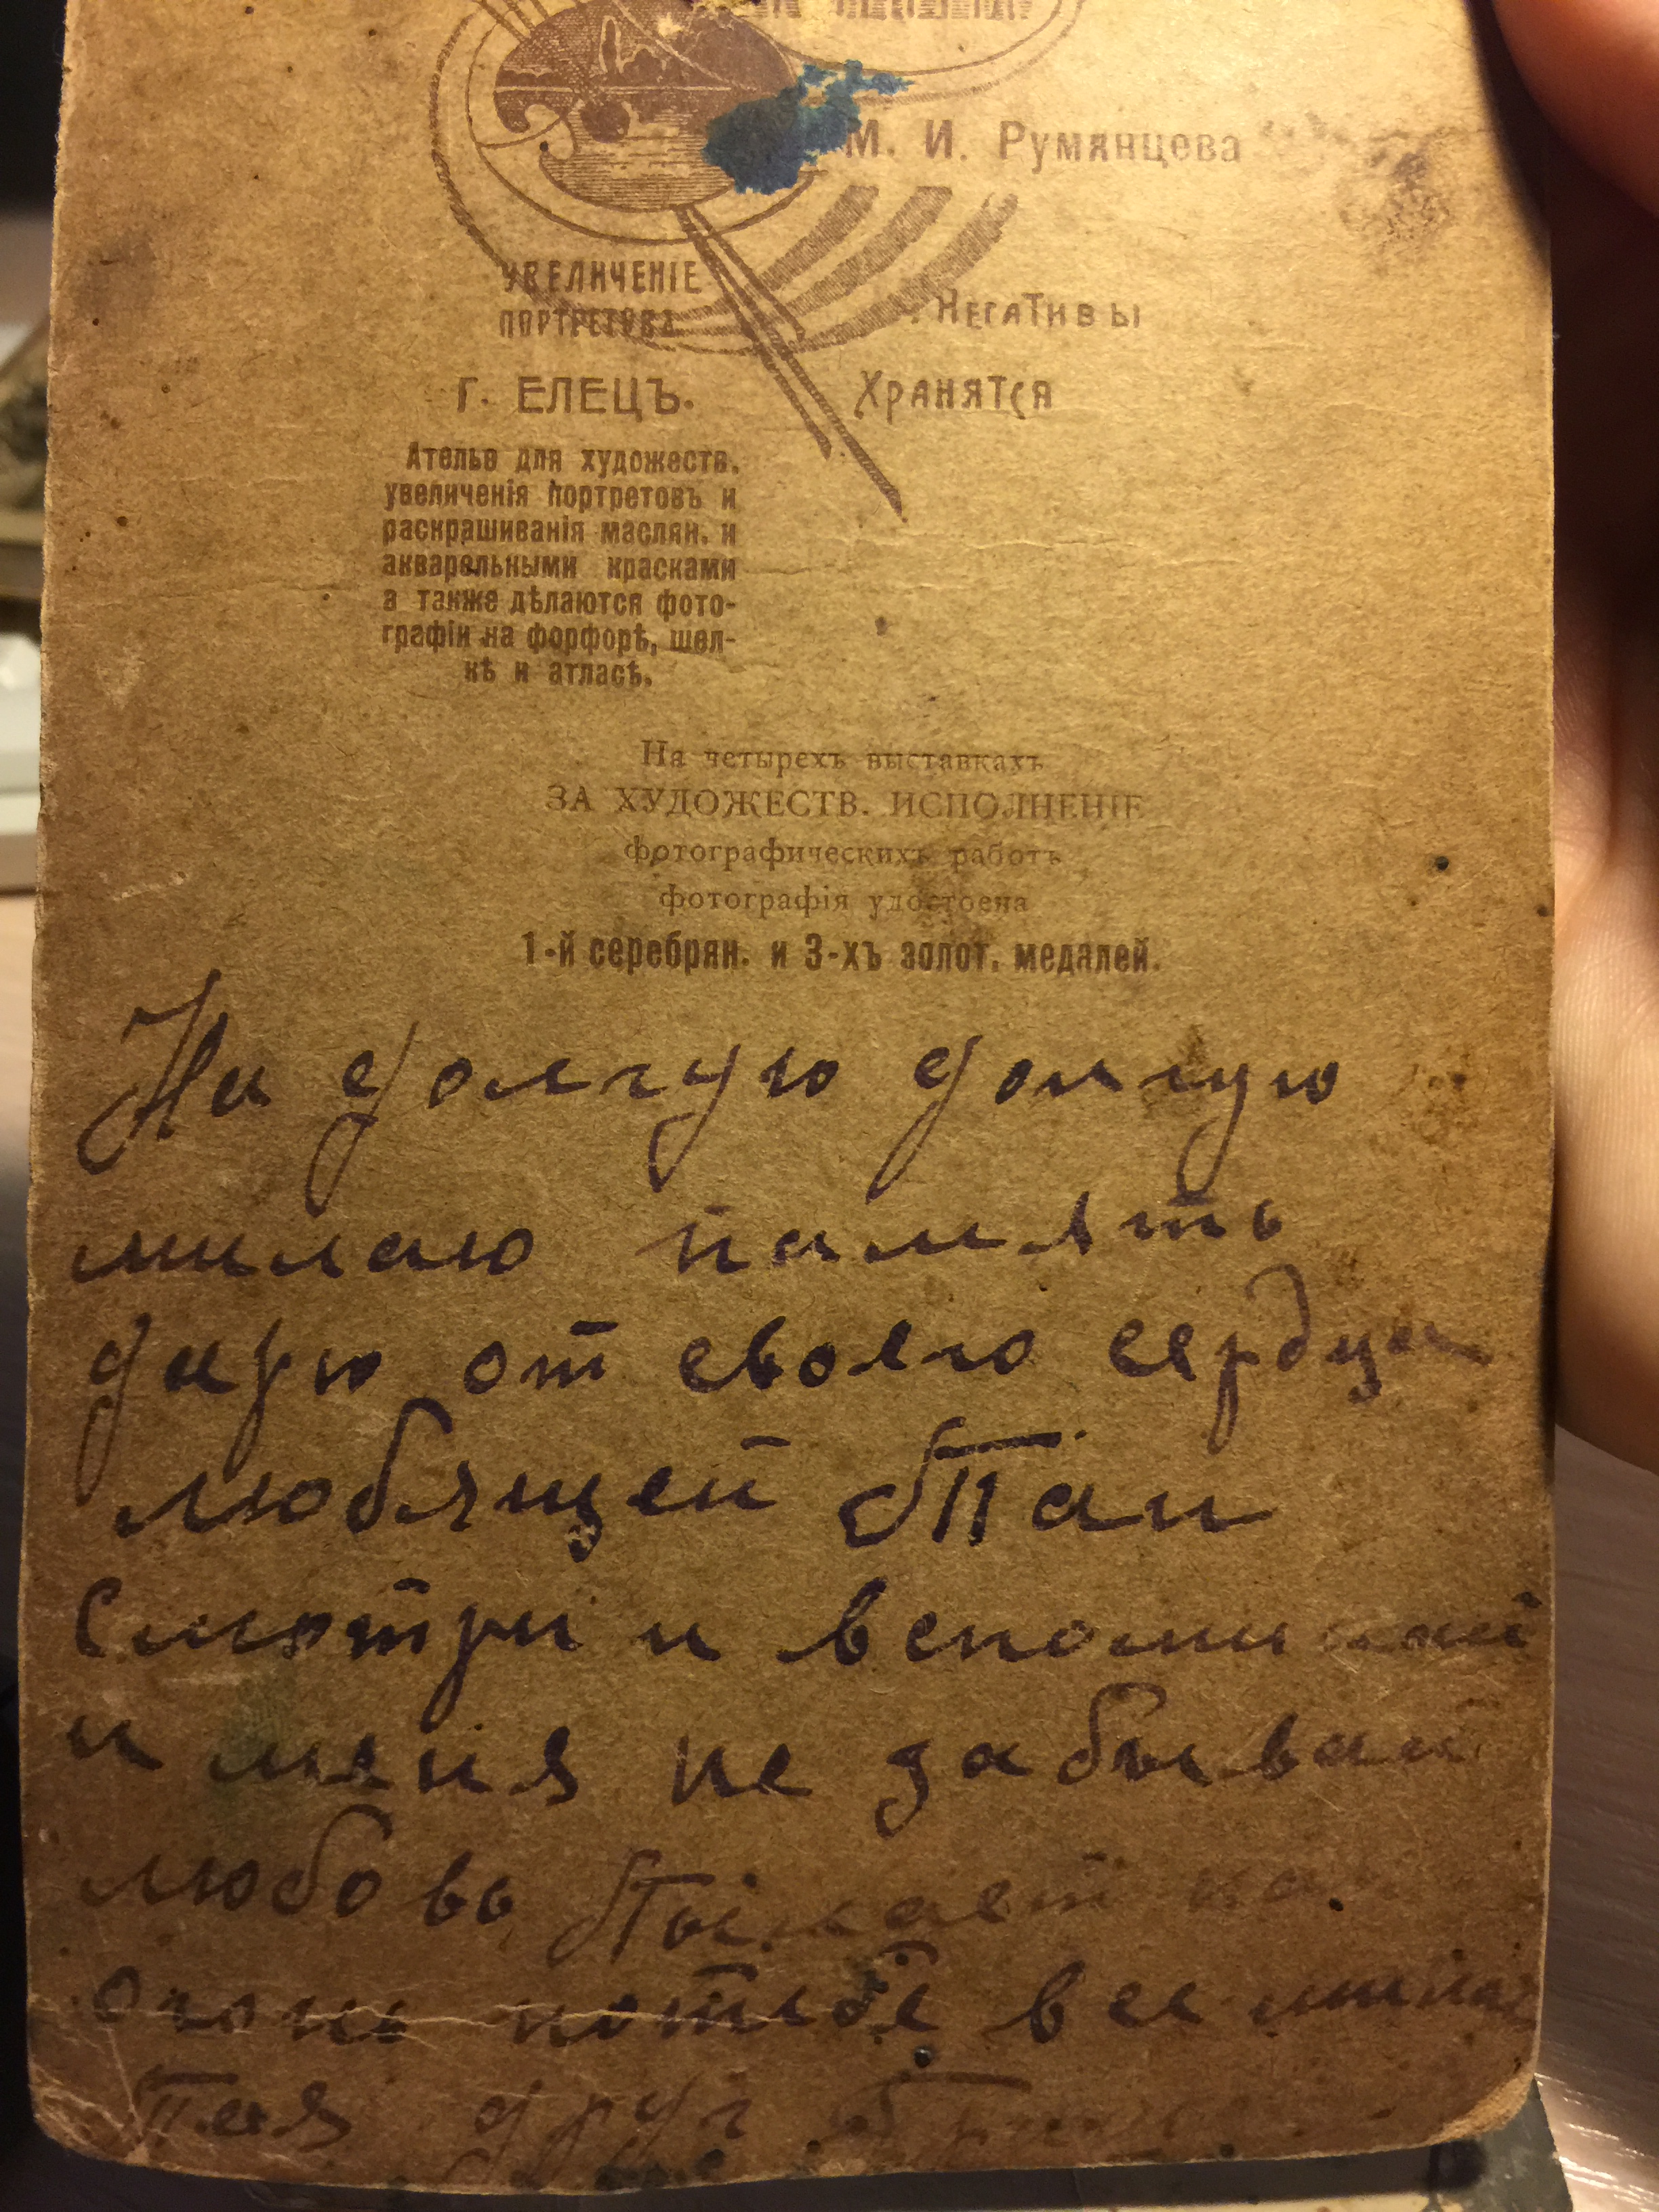 М. И. Румянцева
УВЕЛИЧЕНІЕ
ПОРТРЕТОВЪ
НЕГАТИВЫ
ХРАНЯТСЯ
Г. ЕЛЕЦЪ.
Ателье для художеств.
увеличенія портретовъ и
раскрашиванія маслян. и
акварельными красками
а также дѣлаются фото-
графіи на форфорѣ, шел-
кѣ и атласѣ.
На четырехъ выставкахъ
ЗА ХУДОЖЕСТВ. ИСПОЛНЕНІЕ
фотографическихъ работъ
фотографія удостоена
1-й серебрян. и 3-хъ золот. медалей.
На долгую долгую
милаю память
дарю от своего сердца
любящей Таи
Смотри и вспоминай
и меня не забывай
любовь
огонь потебе все
Тая друг